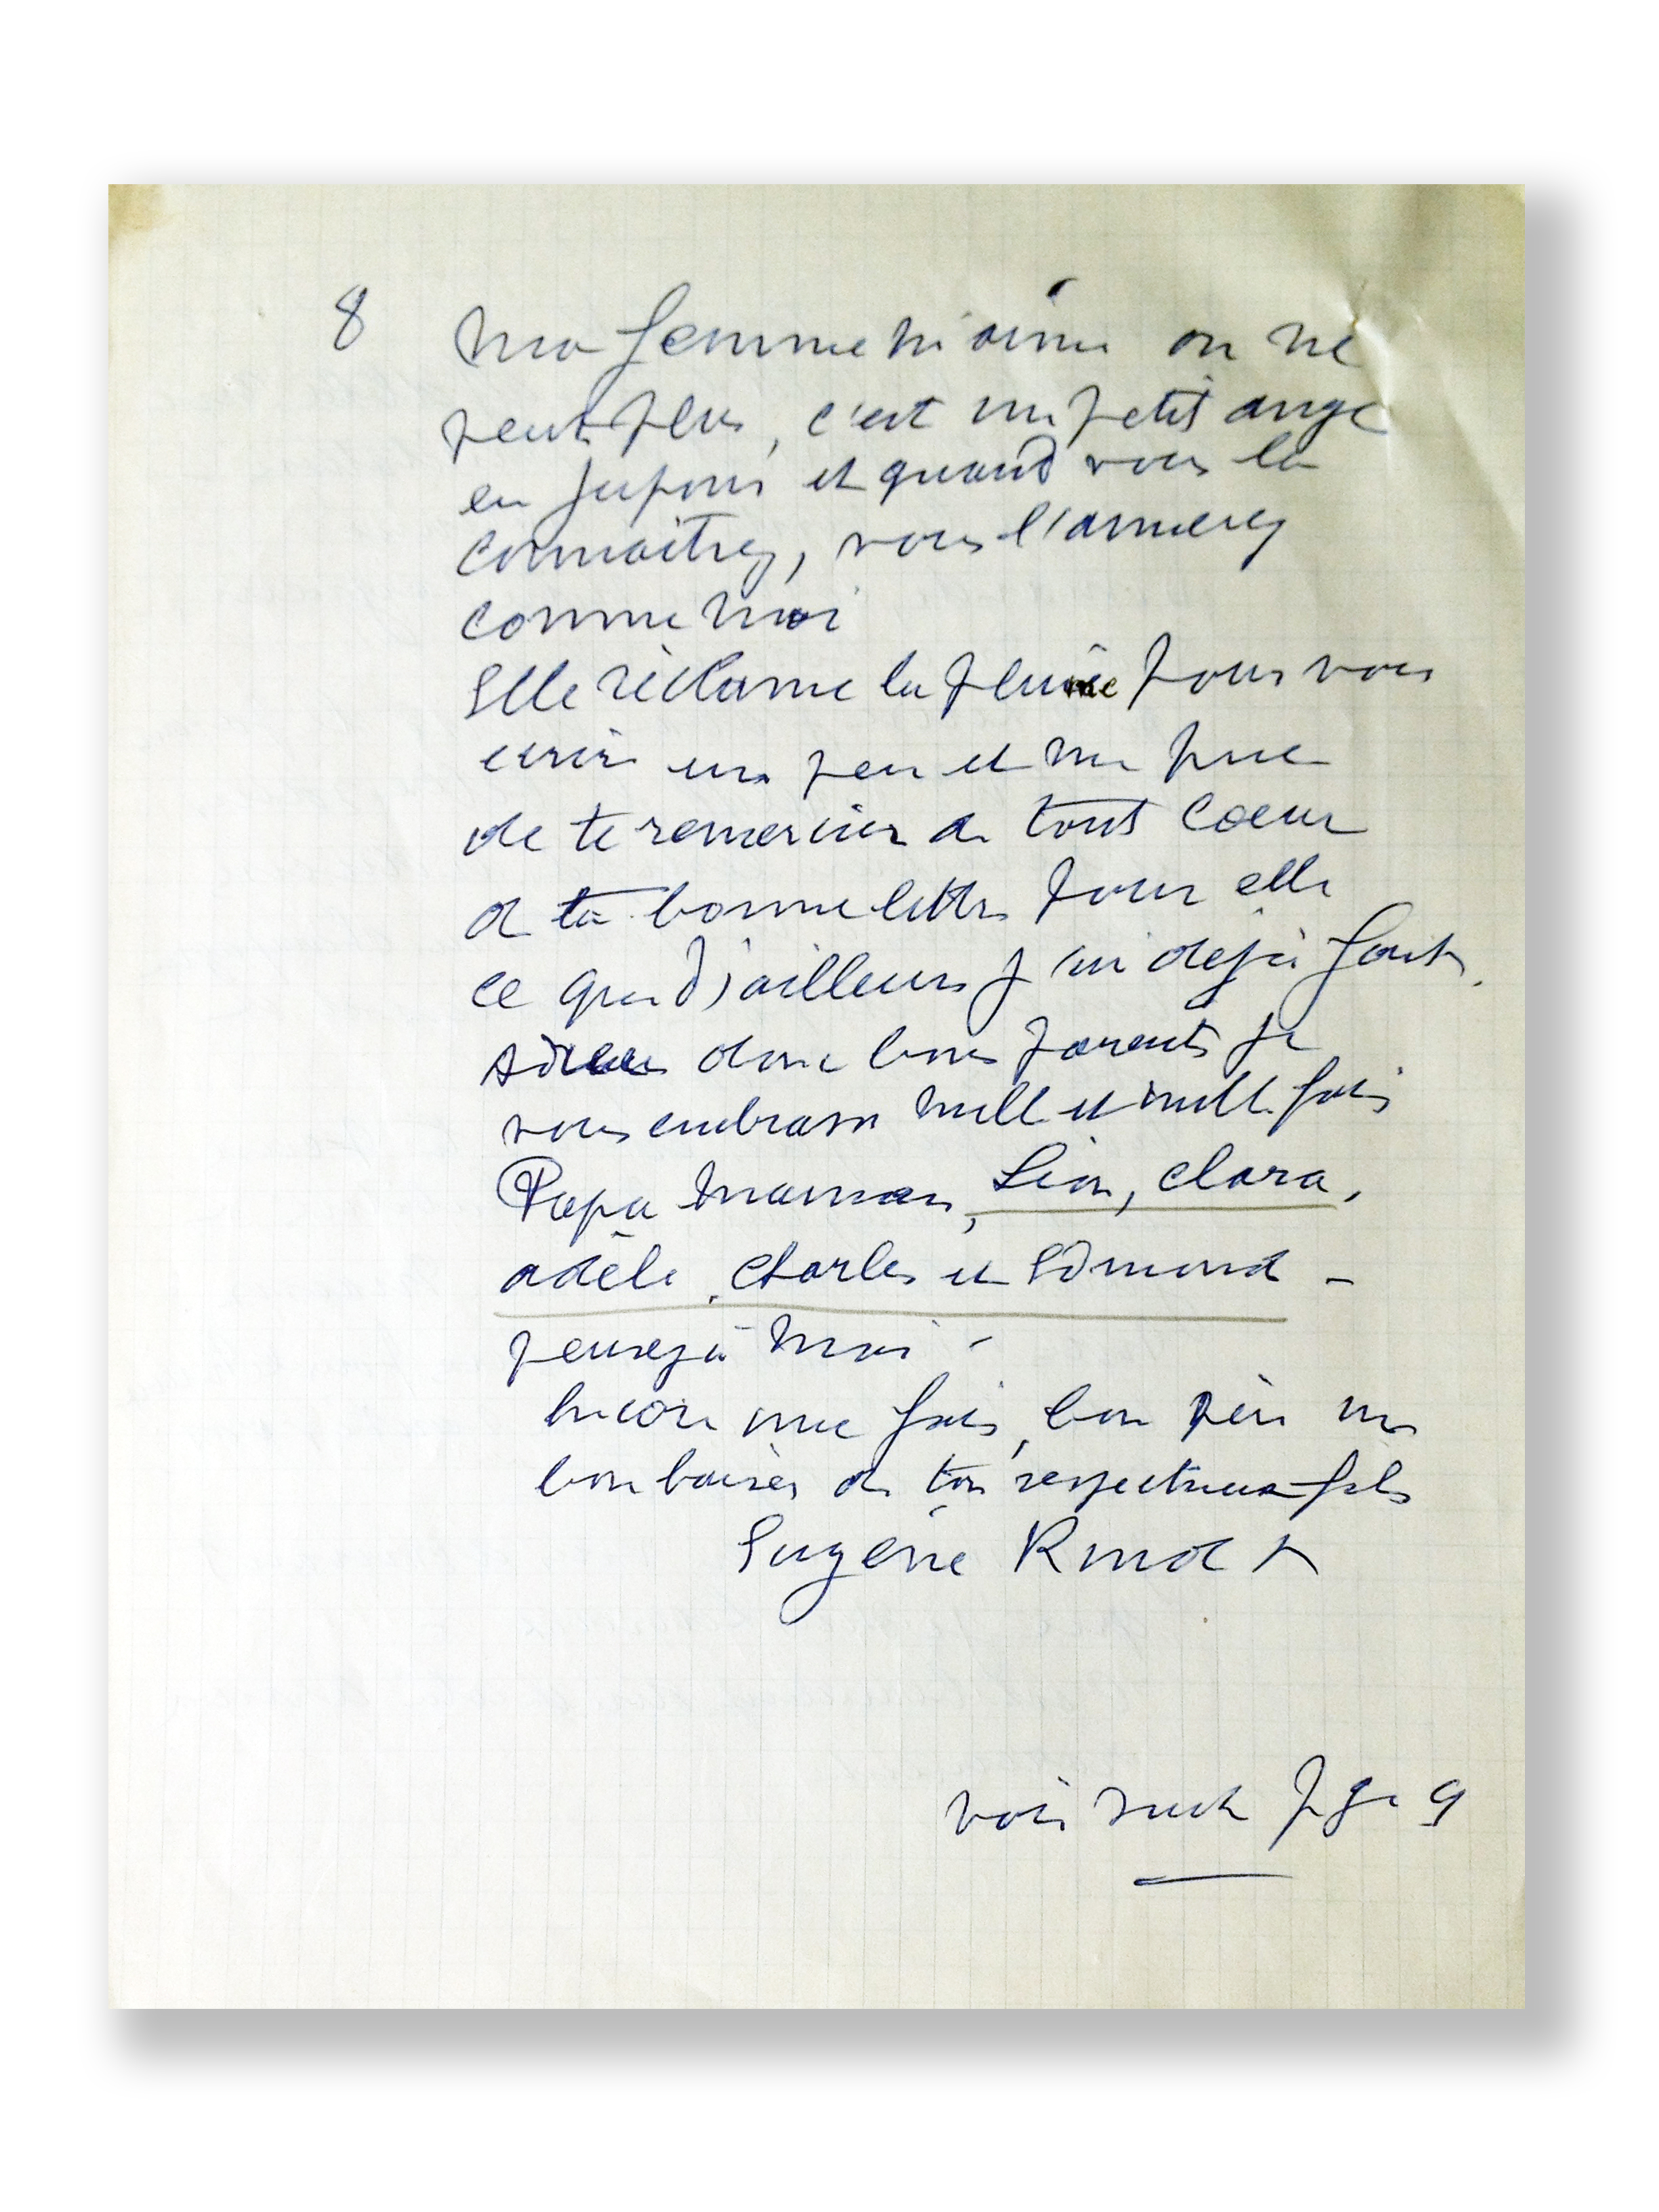 8 ma femme m'aime on ne
peut plus, c'est un petit ange
en jupons et quand vous la
connaitrez, vous l'aimerez
comme moi
Elle réclame la plume pour vous
ecrire un peu et me prie
de te remercier de tout coeur
de ta bonne lettre pour elle
ce que d'ailleurs j'ai dejà fait.
adieu donc bons parents je
vous embrasse mille et mille fois
Papa maman, Léon, Clara,
adèle, Charles et Edmond -
pensez à moi -
Encore une fois, bon père un
bon baiser de ton respectueux fils
Eugène
voir suite page 9